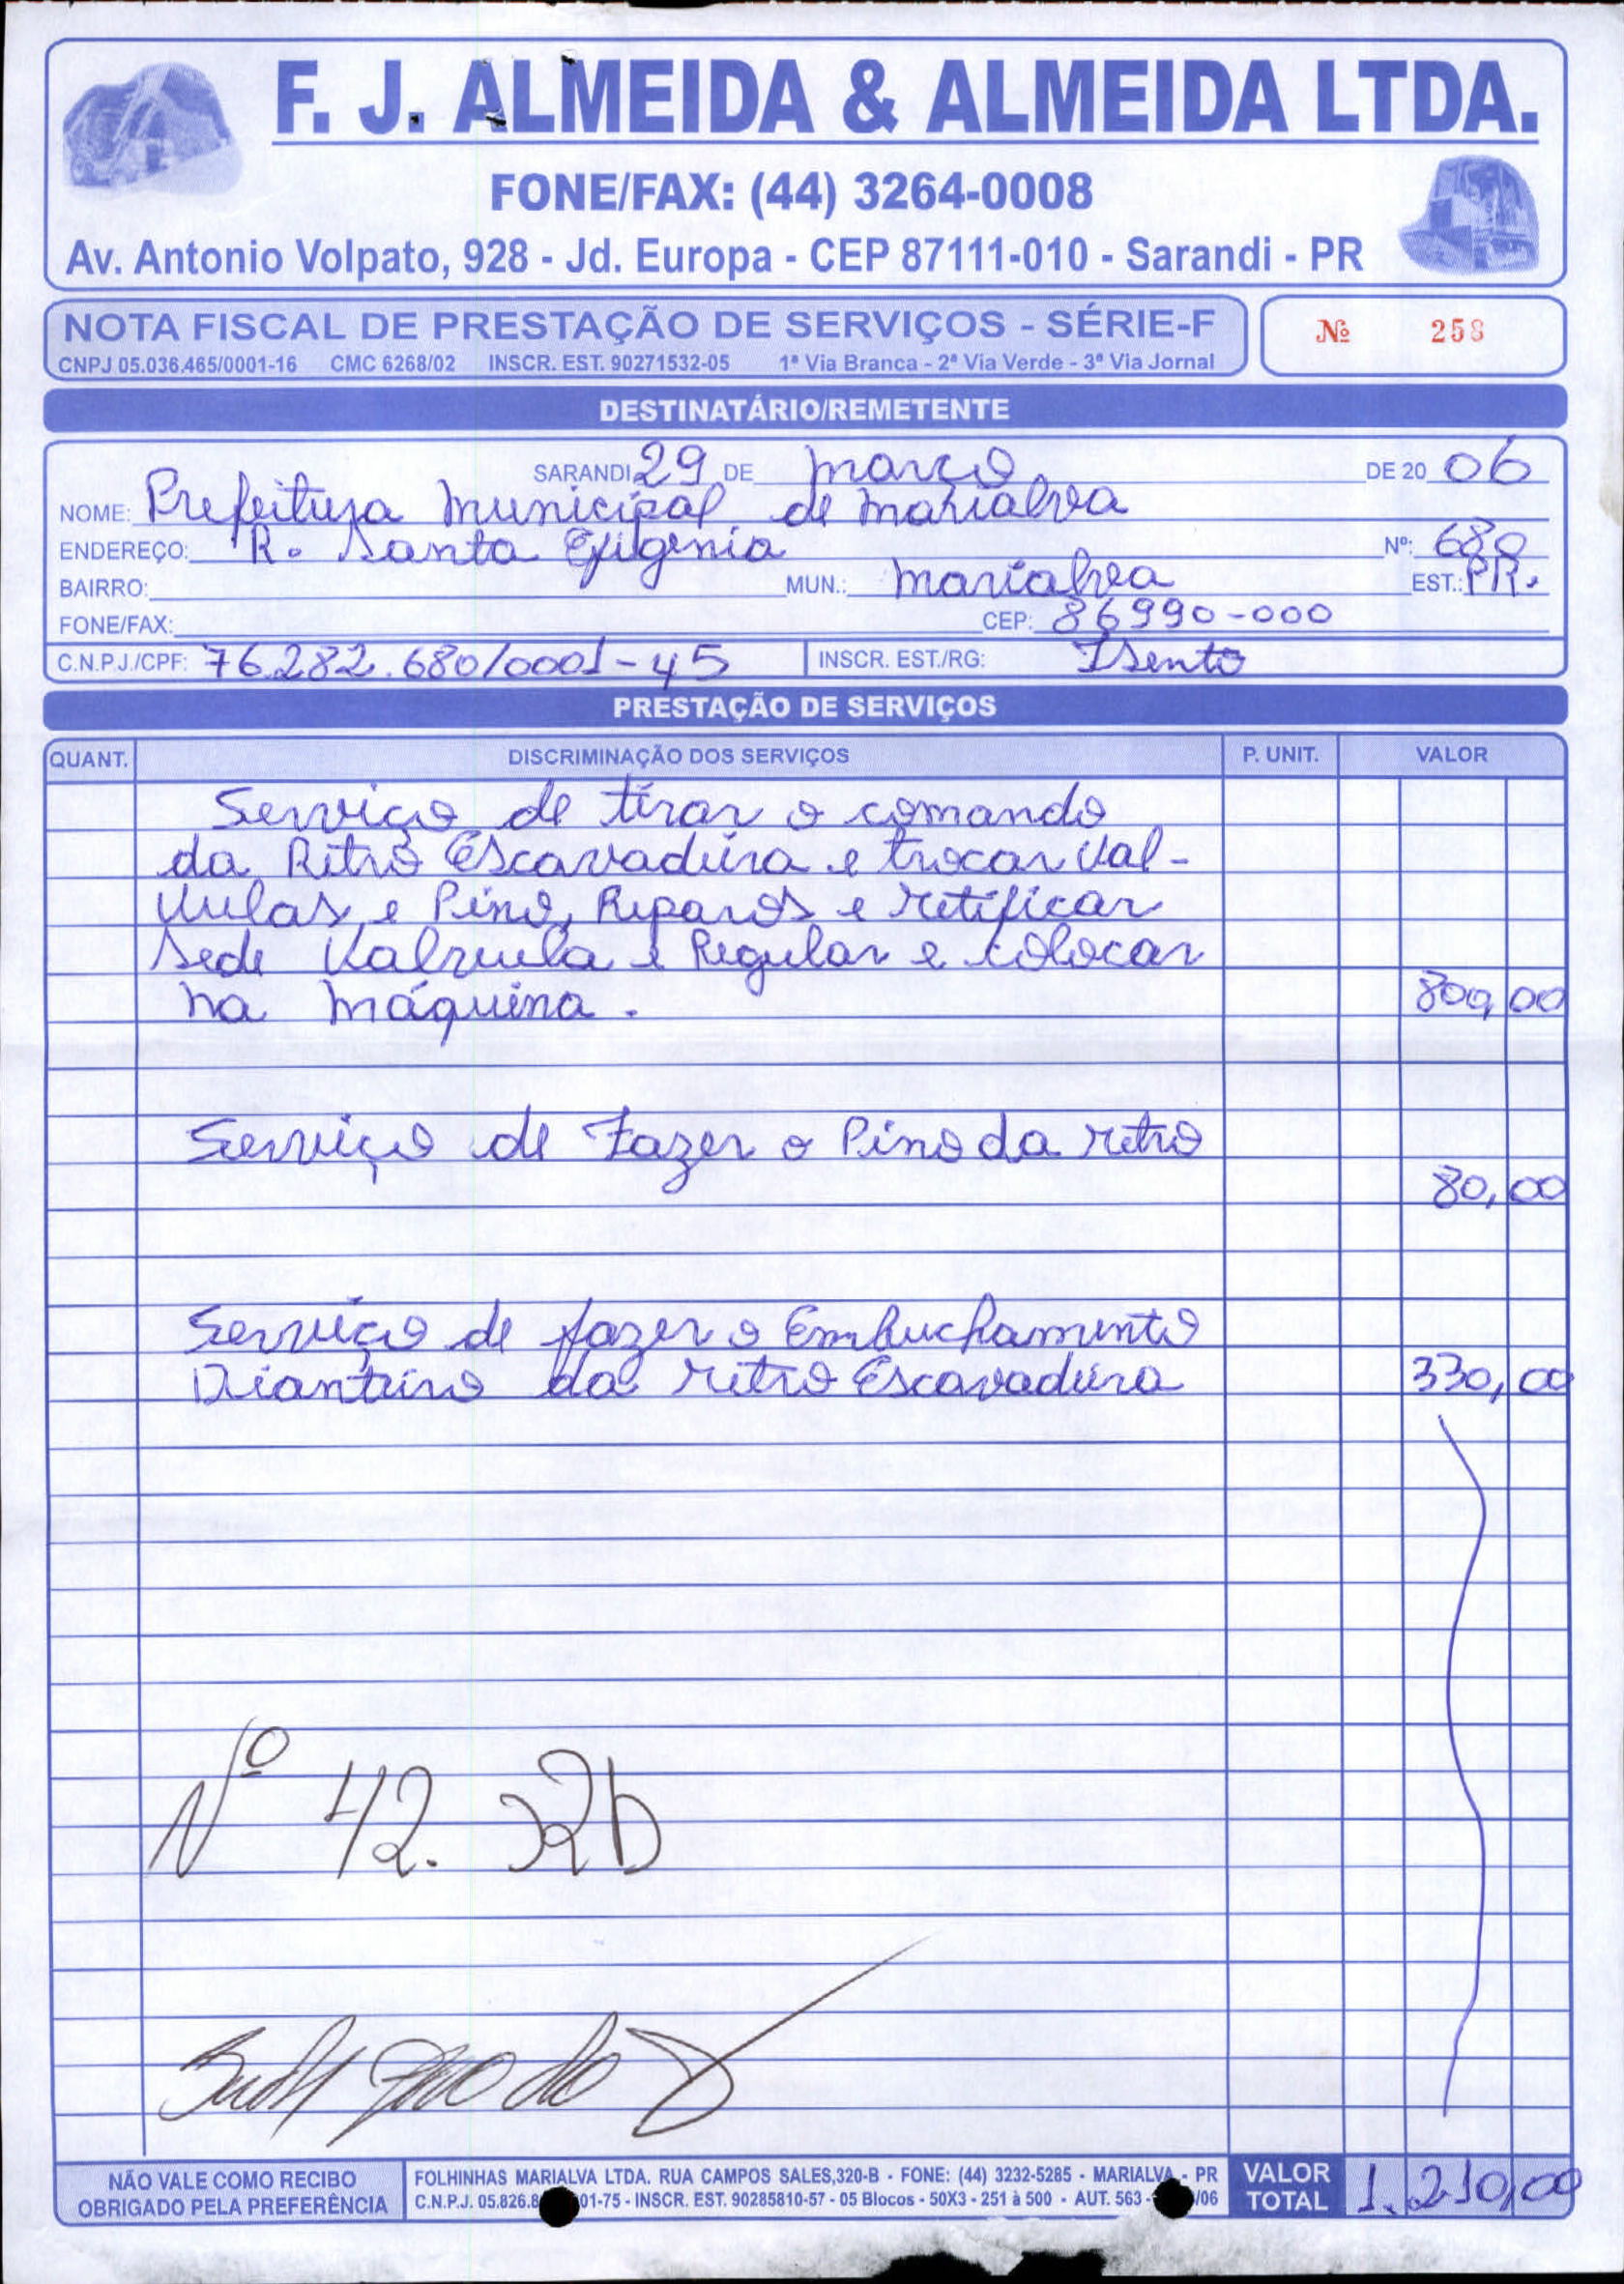 F. J. ALMEIDA & ALMEIDA LTDA.
FONE/FAX: (44) 3264-0008
Av. Antonio Volpato, 928 - Jd. Europa - CEP 87111-010 - Sarandi - PR
NOTA FISCAL DE PRESTAÇÃO DE SERVIÇOS - SÉRIE-F
Nº 258
CNPJ 05.036.465/0001-16 CMC 6268/02 INSCR. EST. 90271532-05 1ª Via Branca - 2ª Via Verde - 3ª Via Jornal
DESTINATÁRIO/REMETENTE
SARANDI 29 DE março DE 20 06
NOME: Prefeitura Municipal de Marialva
ENDEREÇO: R. Santa Efigenia Nº: 680
BAIRRO: MUN.: Marialva EST.: PR.
FONE/FAX: CEP: 86990-000
C.N.P.J./CPF: 76.282.680/0001-45 INSCR. EST./RG: Isento
PRESTAÇÃO DE SERVIÇOS
QUANT. DISCRIMINAÇÃO DOS SERVIÇOS P. UNIT. VALOR
Serviço de tirar o comando
da Retro Escavadeira e trocar Val-
vulas e Pino, Reparos e retificar
Sede Valvula e Regular e colocar
na máquina. 800,00
Serviço de Fazer o Pino da retro
80,00
Serviço de fazer o Embuchamento
Dianteiro da retro Escavadeira 330,00
Nº 42.
NÃO VALE COMO RECIBO
OBRIGADO PELA PREFERÊNCIA
FOLHINHAS MARIALVA LTDA. RUA CAMPOS SALES,320-B - FONE: (44) 3232-5285 - MARIALVA - PR
C.N.P.J. 05.826.8 01-75 - INSCR. EST. 90285810-57 - 05 Blocos - 50X3 - 251 à 500 - AUT. 563 - /06
VALOR TOTAL 1.210,00